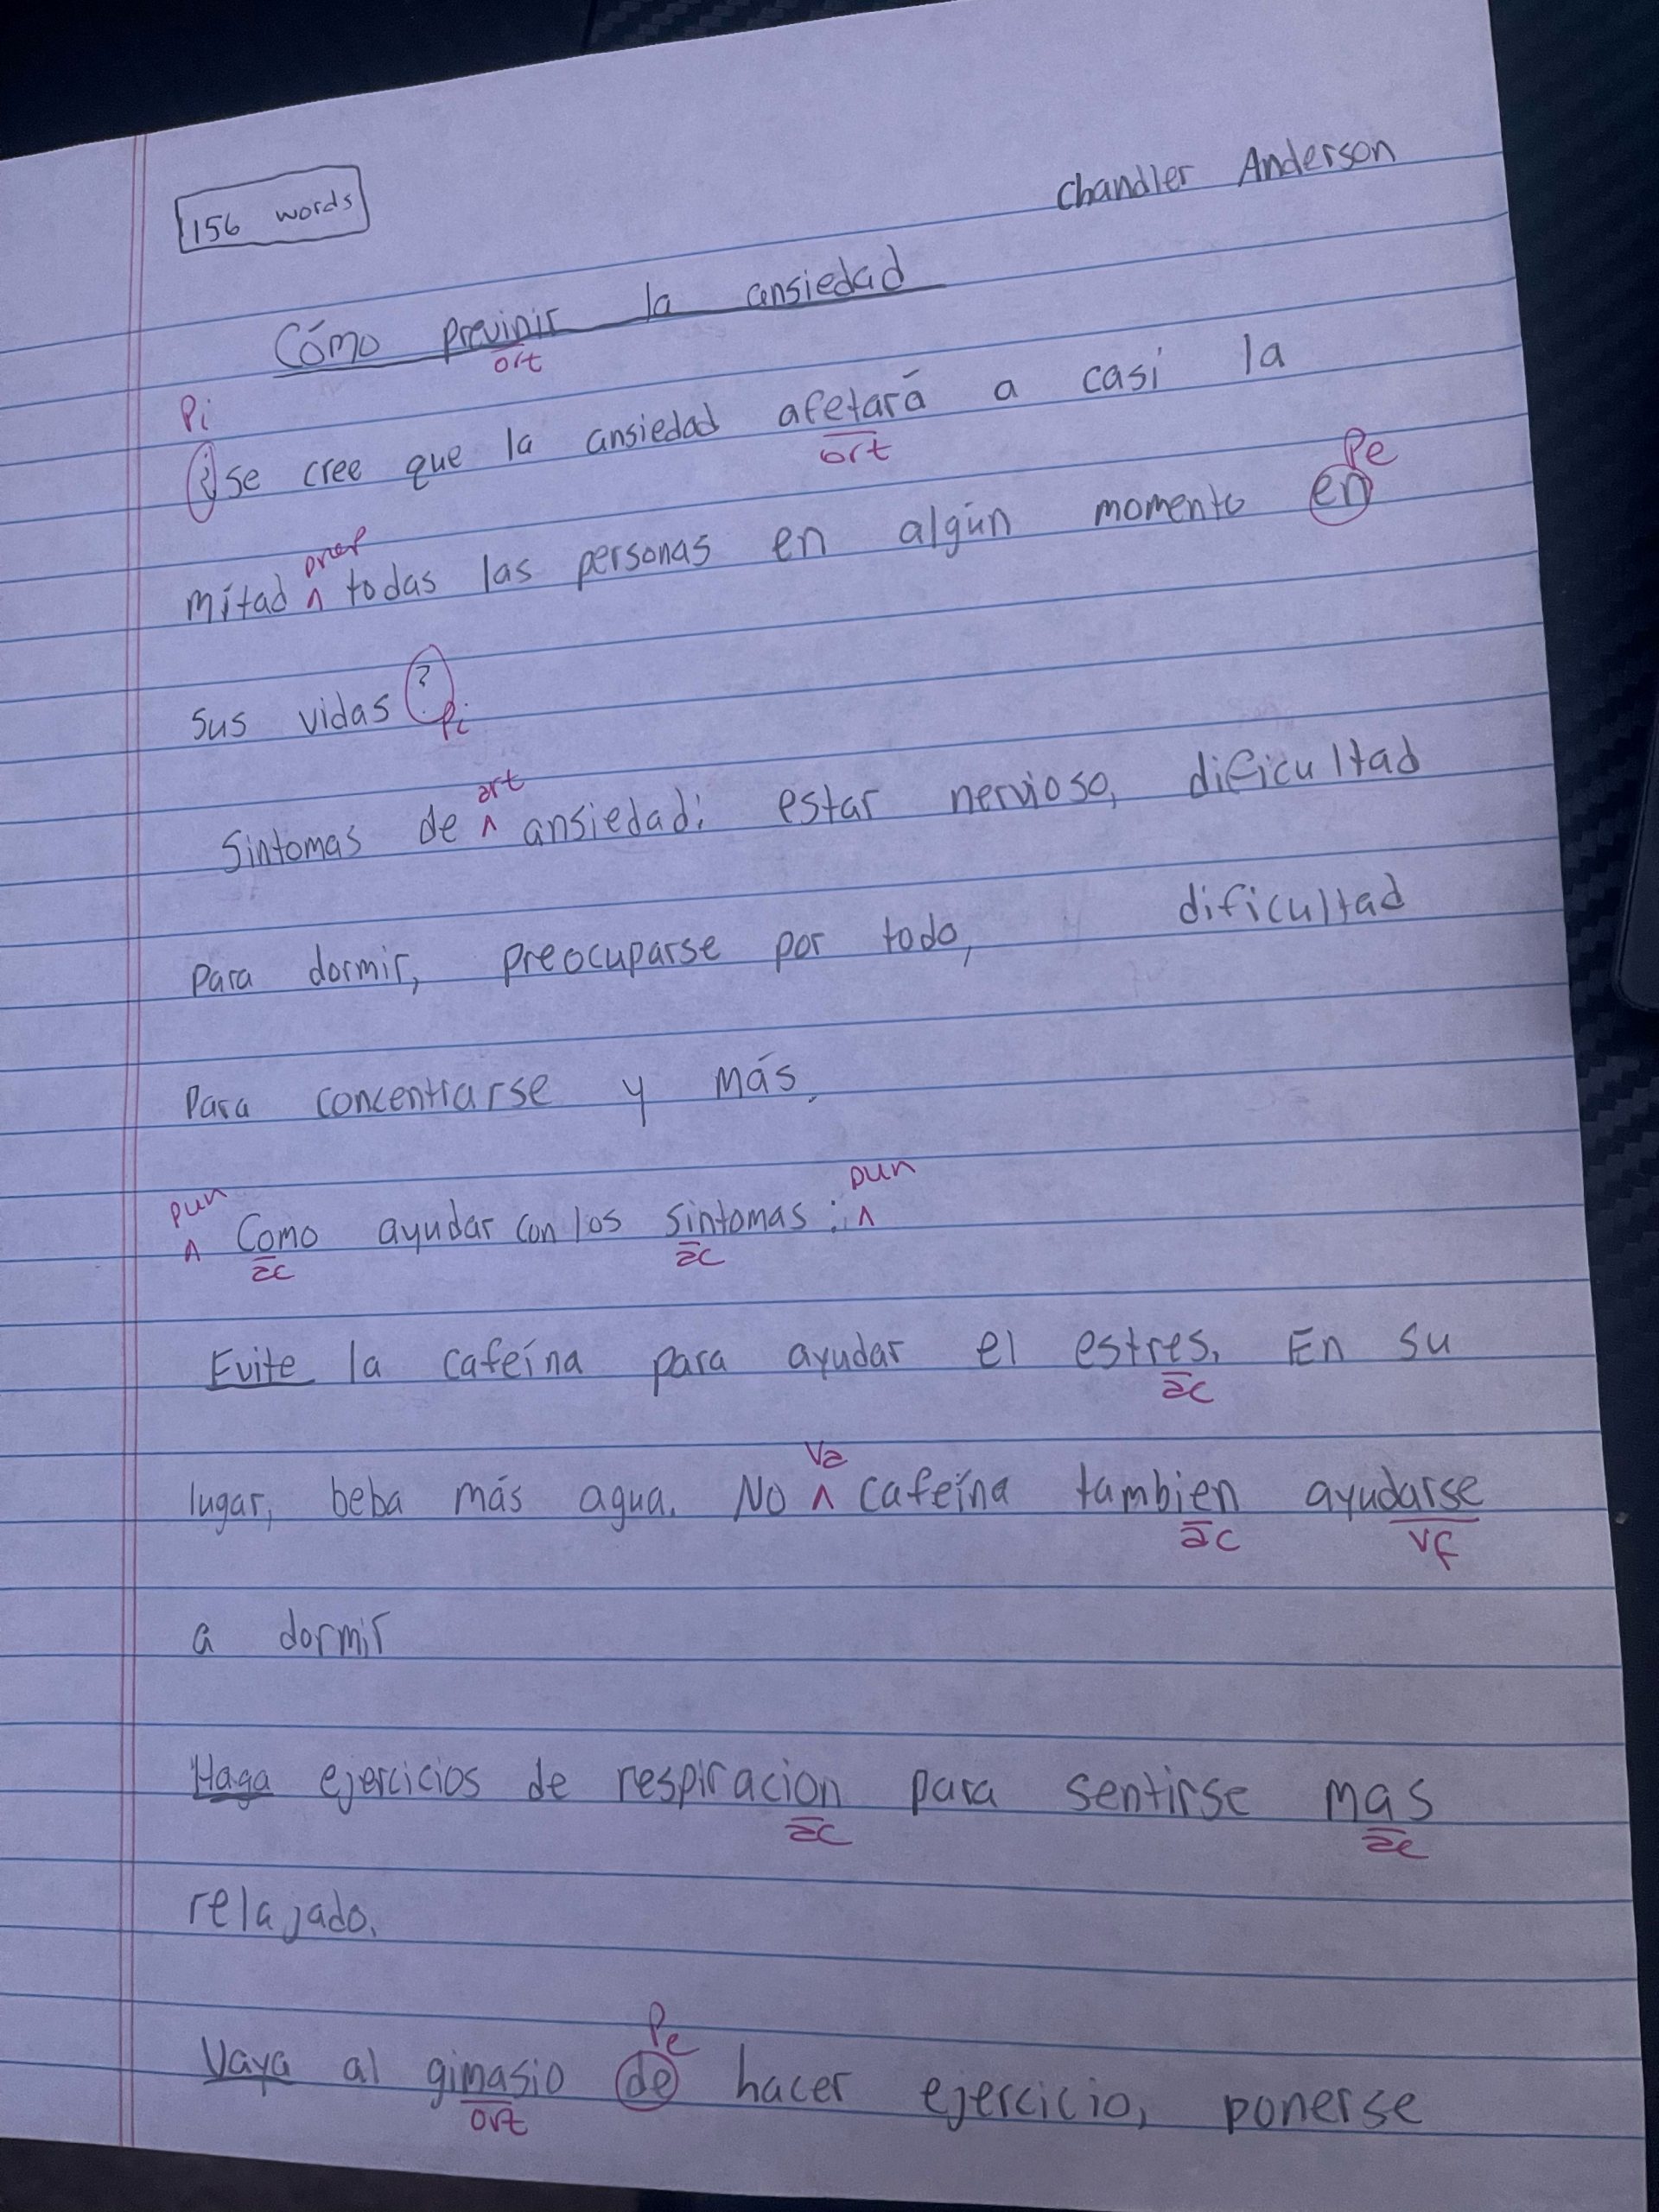 156 words
Chandler Anderson
Cómo previnir la ansiedad
ort
Pi
¿se cree que la ansiedad afetará a casi la
ort
Pe
mitad ^ todas las personas en algún momento en
prep
sus vidas?
Pi
art
Sintomas de ^ ansiedad: estar nervioso, dificultad
para dormir, preocuparse por todo, dificultad
para concentrarse y más.
pun pun
^ Como ayudar con los sintomas: ^
ac ac
Evite la cafeína para ayudar el estres. En su
ac
Va
lugar, beba más agua. No ^ cafeína tambien ayudarse
ac vf
a dormir
Haga ejercicios de respiracion para sentirse mas
ac ac
relajado.
Pe
Vaya al gimasio de hacer ejercicio, ponerse
ort